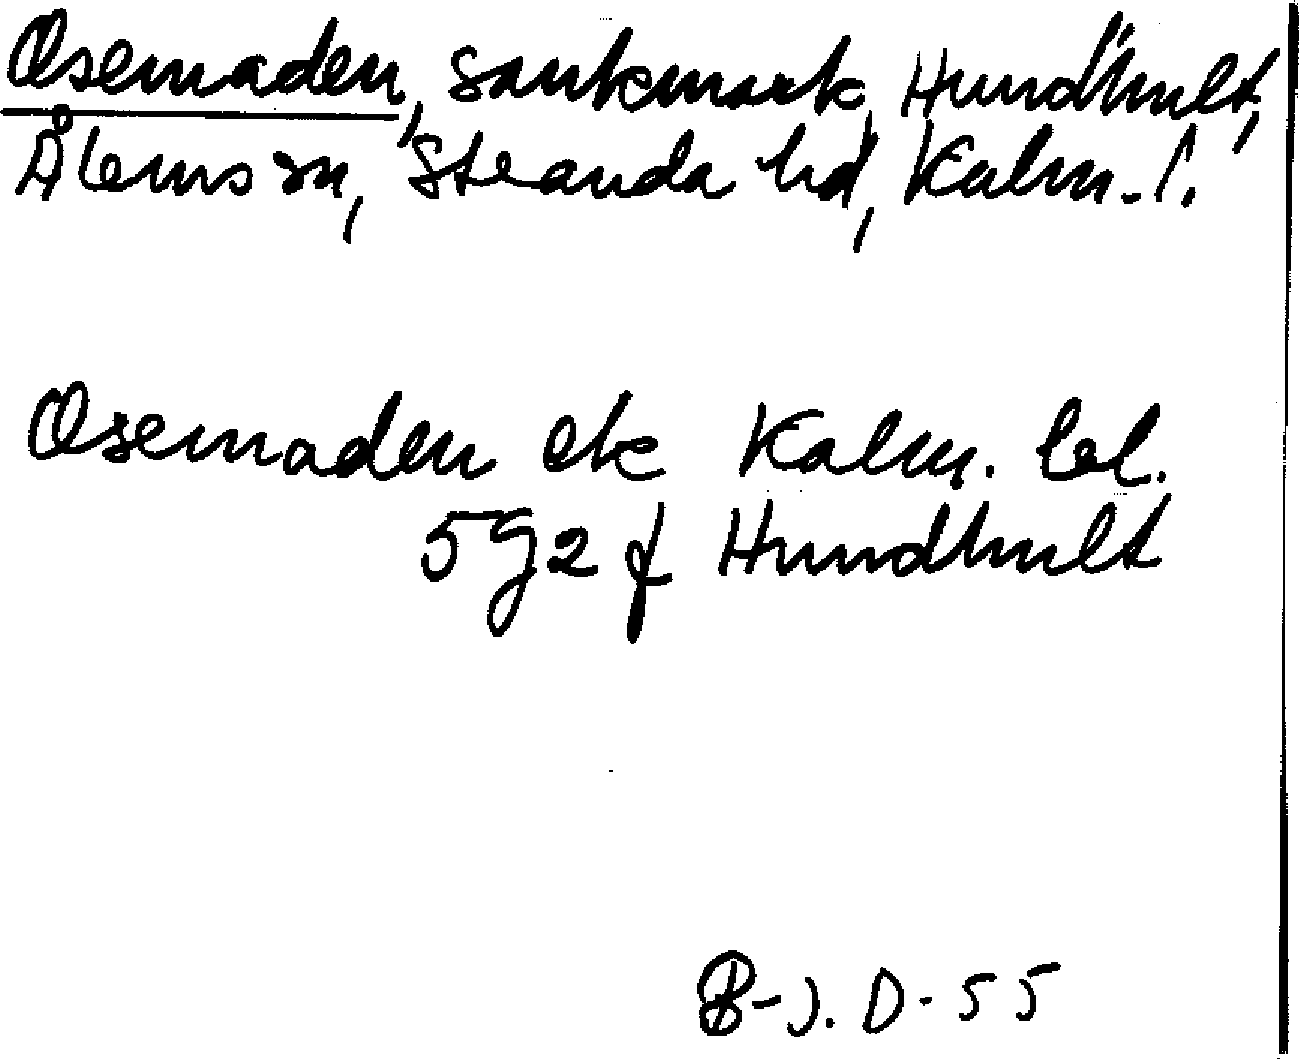 Osemaden, sankmark, Hundhult,
Ålems sn, Stranda hd, Kalm. l.
Osemaden ek Kalm. bl.
5g2f Hundhult
B-J. D-55